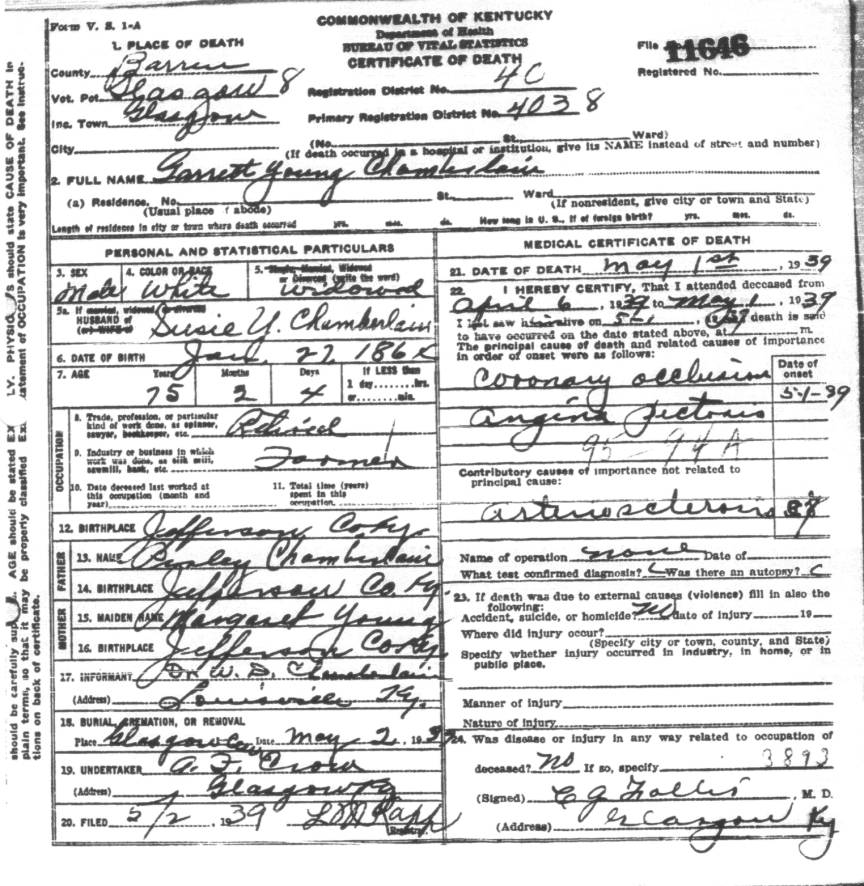 Form V. S. 1-A
COMMONWEALTH OF KENTUCKY
Department of Health
BUREAU OF VITAL STATISTICS
CERTIFICATE OF DEATH
File 11646
Registered No.
1. PLACE OF DEATH
County Barren
Vot. Pct Glasgow 8
Inc. Town Glasgow
City
Registration District No. 40
Primary Registration District No. 4038
(No. St. Ward)
(If death occurred in a hospital or institution, give its NAME instead of street and number)
2. FULL NAME Garrett Young Chamberlain
(a) Residence. No. St. Ward
(Usual place of abode) (If nonresident, give city or town and State)
Length of residence in city or town where death occurred yrs. mos. ds. How long in U. S., if of foreign birth? yrs. mos. ds.
PERSONAL AND STATISTICAL PARTICULARS
3. SEX 4. COLOR OR RACE 5. Single, Married, Widowed or Divorced (write the word)
Male White Widowed
5a. If married, widowed or divorced
HUSBAND of Susie Y. Chamberlain
(or) WIFE of
6. DATE OF BIRTH Jan. 27, 186
7. AGE Years Months Days If LESS than
1 day hrs.
or min.
75 2 4
OCCUPATION
8. Trade, profession, or particular kind of work done, as spinner, sawyer, bookkeeper, etc. Retired
9. Industry or business in which work was done, as silk mill, sawmill, bank, etc. Farmer
10. Date deceased last worked at this occupation (month and year)
11. Total time (years) spent in this occupation
12. BIRTHPLACE Jefferson Co. Ky.
FATHER
13. NAME Chamberlain
14. BIRTHPLACE Jefferson Co. Ky
MOTHER
15. MAIDEN NAME Margaret Young
16. BIRTHPLACE Jefferson Co Ky
17. INFORMANT Dr W. D. Chamberlain
(Address) Louisville Ky.
18. BURIAL, CREMATION, OR REMOVAL
Place Glasgow Date May 2, 1939
19. UNDERTAKER A. F. Crow
(Address) Glasgow Ky
20. FILED 5/2, 1939
Registrar.
MEDICAL CERTIFICATE OF DEATH
21. DATE OF DEATH May 1st, 1939
22. I HEREBY CERTIFY, That I attended deceased from
April 6, 1939 to May 1, 1939
I last saw him alive on 5-1, 1939 death is said
to have occurred on the date stated above, at m.
The principal cause of death and related causes of importance
in order of onset were as follows:
Date of onset
Coronary occlusion 5-1-39
Angina Pectoris
95-94A
Contributory causes of importance not related to
principal cause:
arteriosclerosis
Name of operation none Date of
What test confirmed diagnosis? Was there an autopsy?
23. If death was due to external causes (violence) fill in also the
following:
Accident, suicide, or homicide? No date of injury 19
Where did injury occur?
(Specify city or town, county, and State)
Specify whether injury occurred in industry, in home, or in
public place.
Manner of injury
Nature of injury
24. Was disease or injury in any way related to occupation of
deceased? No If so, specify 3893
(Signed) C G Follis, M. D.
(Address) Glasgow Ky